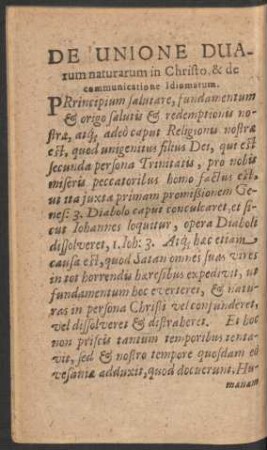 DE UNIONE DUA-
rum naturarum in Christo. & de
communicatione Idiomatum.
PRrincipium salutare, fundamentum
& origo salutis & redemptionis no-
stræ, atq; adeò caput Religionis nostræ
est, quod unigenitus filius Dei, qui est
secunda persona Trinitatis, pro nobis
miseris peccatoribus homo factus est,
ut ita juxta primam promissionem Ge-
nes: 3. Diabolo caput conculcaret, et si-
cut Iohannes loquitur, opera Diaboli
dissolveret, 1. Ioh: 3. Atq; hæc etiam
causa est, quod Satan omnes suas vires
in tot horrendis hæresibus expedivit, ut
fundamentum hoc everteret, & natu-
ras in persona Christi vel confunderet,
vel dissolveret & distraheret. Et hoc
non priscis tantum temporibus tenta-
vit, sed & nostro tempore quosdam eò
vesaniæ adduxit, quod docuerunt, Hu-
manam